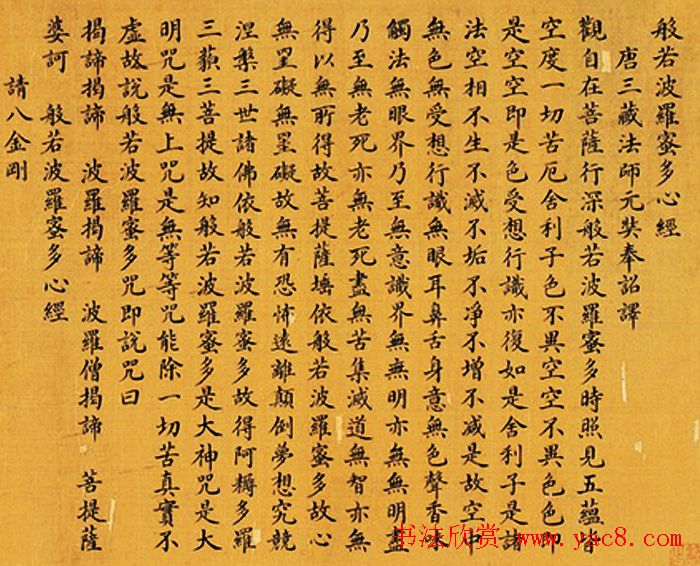 般若波羅蜜多心經
唐三藏法師元奘奉詔譯
觀自在菩薩行深般若波羅蜜多時照見五蘊皆
空度一切苦厄舍利子色不異空空不異色色即
是空空即是色受想行識亦復如是舍利子是諸
法空相不生不滅不垢不净不增不減是故空中
無色無受想行識無眼耳鼻舌身意無色聲香味
觸法無眼界乃至無意識界無無明亦無無明盡
乃至無老死亦無老死盡無苦集滅道無智亦無
得以無所得故菩提薩埵依般若波羅蜜多故心
無罣礙無罣礙故無有恐怖遠離顛倒夢想究竟
涅槃三世諸佛依般若波羅蜜多故得阿耨多羅
三藐三菩提故知般若波羅蜜多是大神咒是大
明咒是無上咒是無等等咒能除一切苦真實不
虛故說般若波羅蜜多咒即說咒曰
揭諦揭諦 波羅揭諦 波羅僧揭諦 菩提薩
婆訶 般若波羅蜜多心經
請八金剛
书法欣赏 www.yac8.com